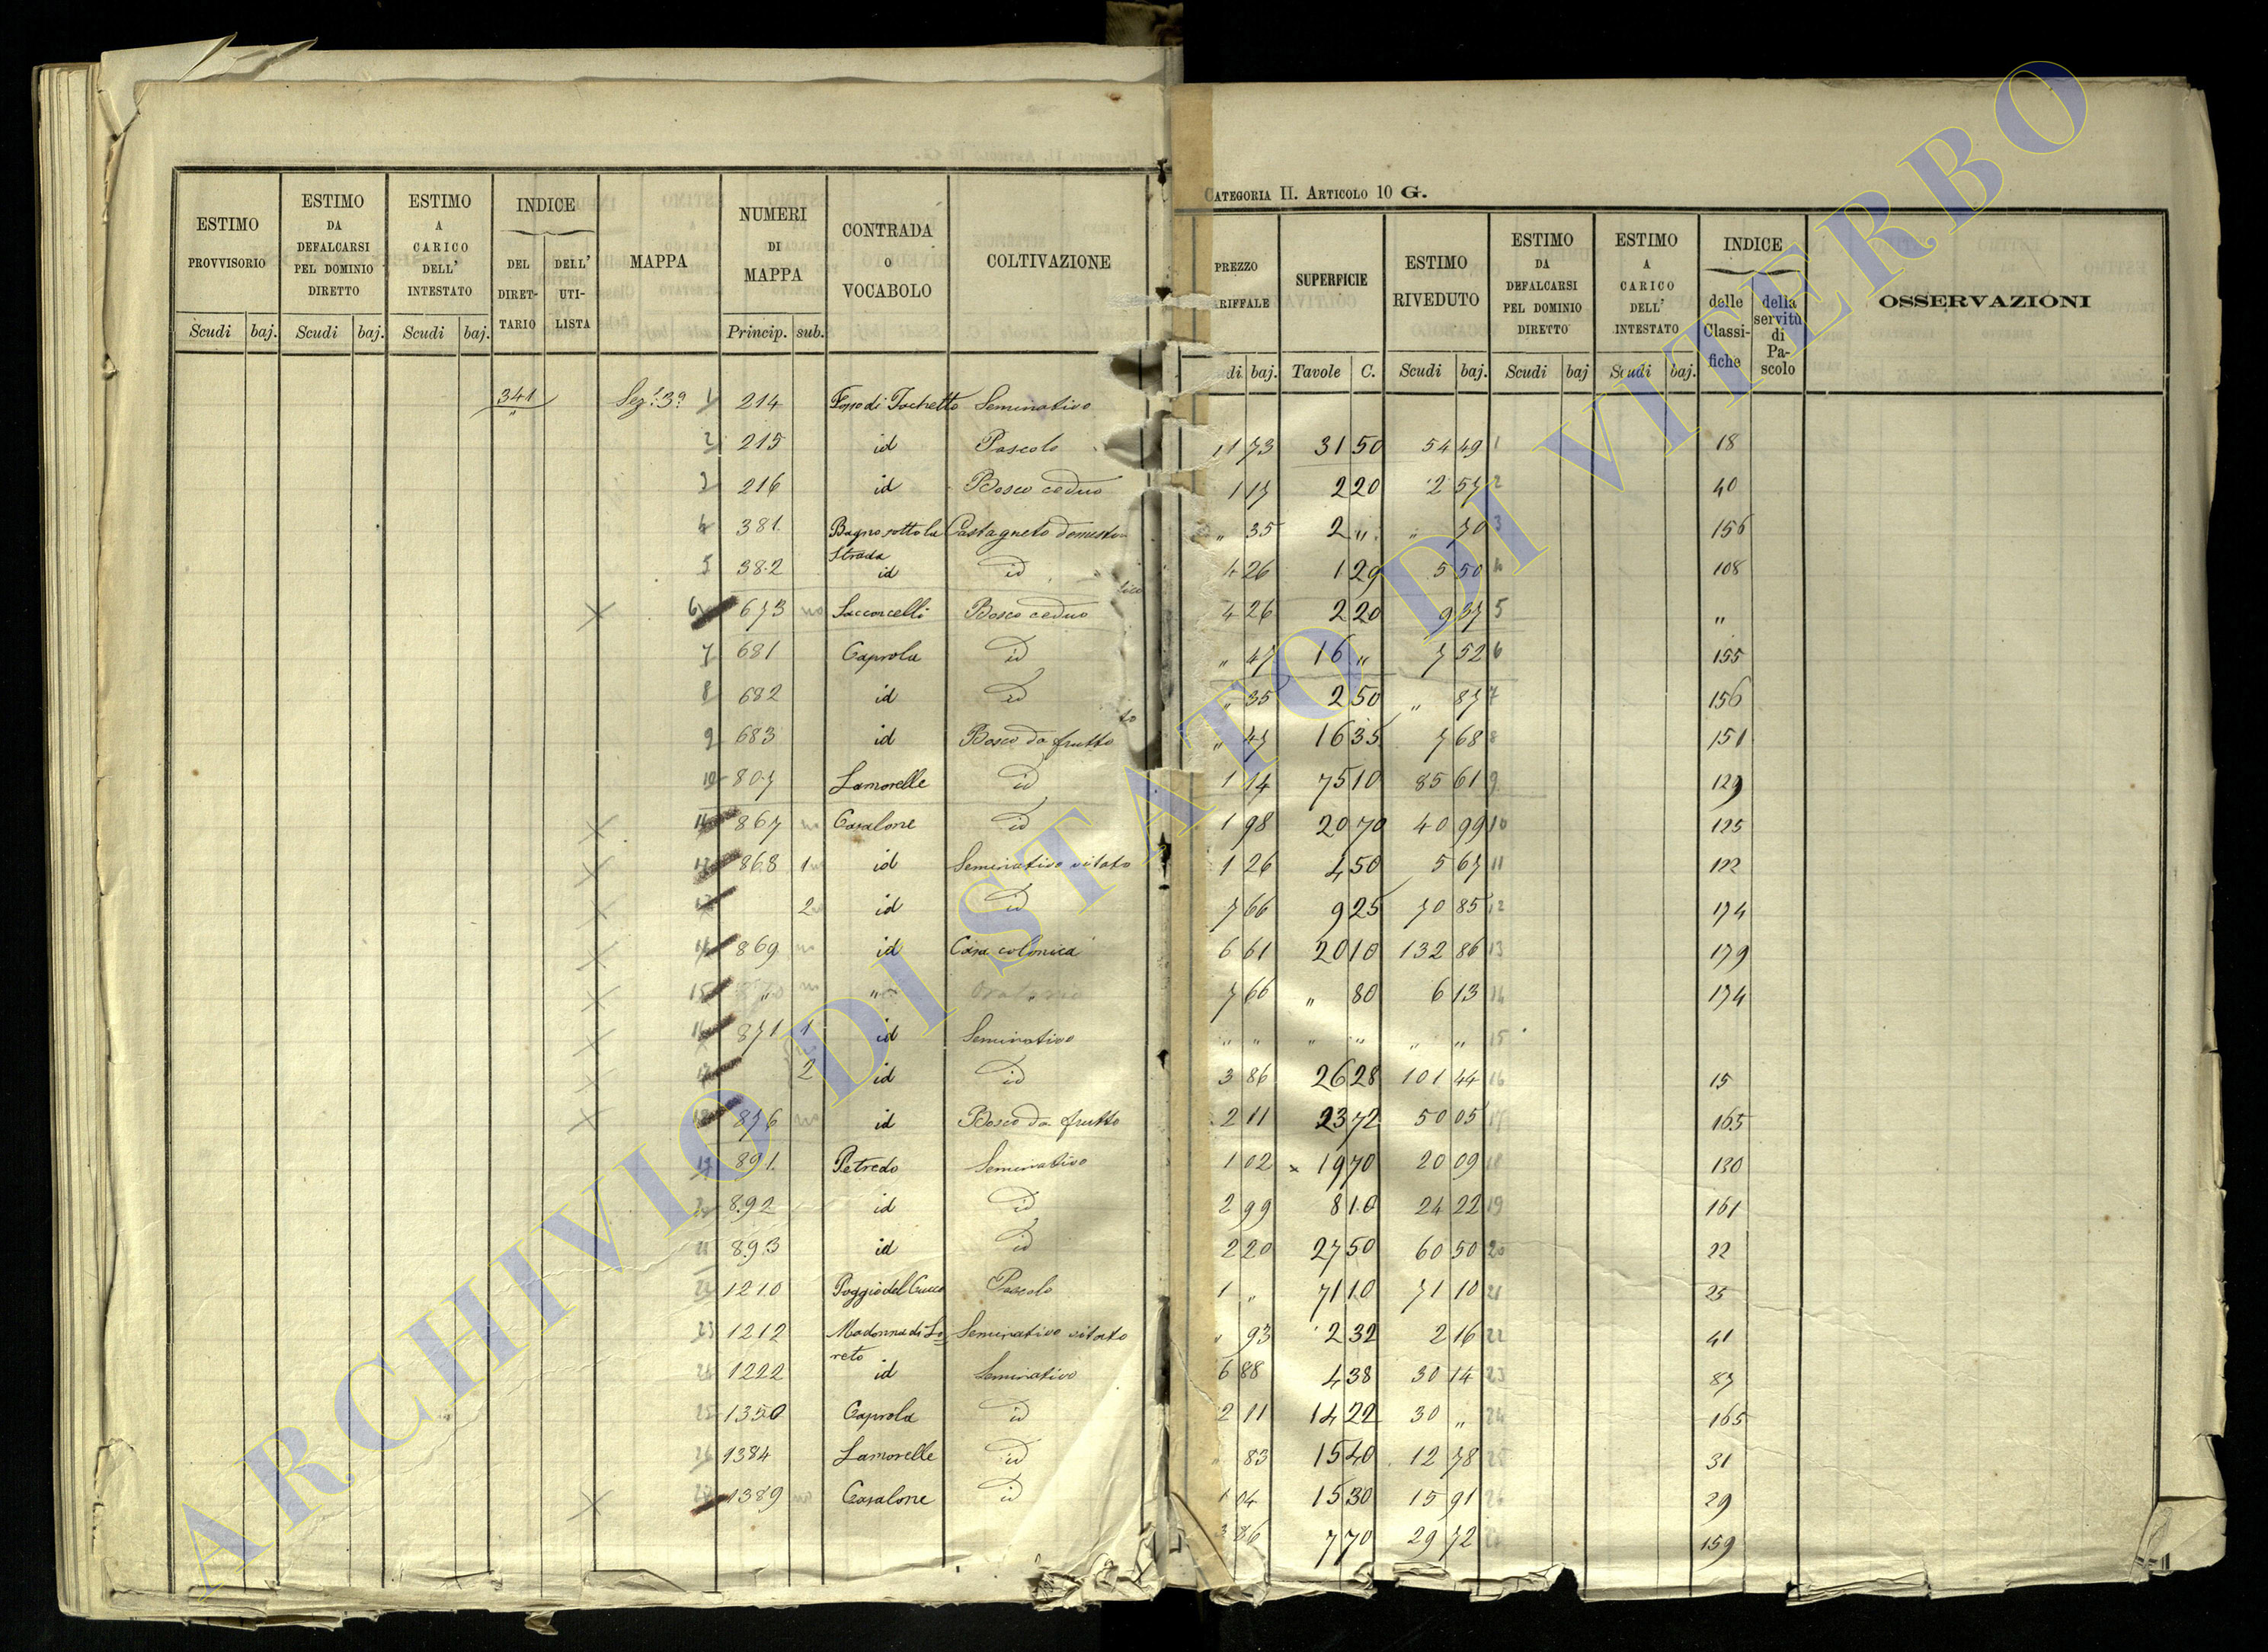 CATEGORIA II. ARTICOLO 10 G.
ESTIMO PROVVISORIO Scudi baj.
ESTIMO DA DEFALCARSI PEL DOMINIO DIRETTO Scudi baj.
ESTIMO A CARICO DELL' INTESTATO Scudi baj.
INDICE DEL DIRETTARIO DELL' UTILISTA
MAPPA
NUMERI DI MAPPA Princip. sub.
CONTRADA O VOCABOLO
COLTIVAZIONE
341 Sez.e 3a 1 214 Fosso di Tochetto Seminativo
2 215 id Pascolo
3 216 id Bosco ceduo
4 381 Bagno sotto la Strada Castagneto domestico
5 382 id id
6 673 Sacconcelli Bosco ceduo
7 681 Caprola id
8 682 id id
9 683 id Bosco da frutto
10 807 Lamorelle id
11 867 Casalone id
12 868 1 id Seminativo vitato
13 2 id id
14 869 id Casa colonica
15 " " Oratorio
16 871 1 id Seminativo
17 2 id id
18 876 id Bosco da frutto
19 891 Petredo Seminativo
20 892 id id
21 893 id id
22 1210 Poggio del Cucco Pascolo
23 1212 Madonna di Loreto Seminativo vitato
24 1222 id Seminativo
25 1350 Caprola id
26 1384 Lamorelle id
27 1389 Casalone id
PREZZO TARIFFALE baj.
SUPERFICIE Tavole C.
ESTIMO RIVEDUTO Scudi baj.
ESTIMO DA DEFALCARSI PEL DOMINIO DIRETTO Scudi baj
ESTIMO A CARICO DELL' INTESTATO Scudi baj.
INDICE delle Classifiche della servitù di Pascolo
OSSERVAZIONI
1 73 31 50 54 49 1 18
1 17 2 20 2 57 2 40
" 35 2 " " 70 3 156
4 26 1 29 5 50 4 108
4 26 2 20 9 37 5 "
" 47 16 " 7 52 6 155
" 35 2 50 " 87 7 156
" 47 16 35 7 68 8 151
1 14 75 10 85 61 9 129
1 98 20 70 40 99 10 125
1 26 4 50 5 67 11 122
7 66 9 25 70 85 12 174
6 61 20 10 132 86 13 179
7 66 " 80 6 13 14 174
" " " " " " 15
3 86 26 28 101 44 16 15
2 11 23 72 50 05 17 165
1 02 19 70 20 09 18 130
2 99 8 10 24 22 19 161
2 20 27 50 60 50 20 22
1 " 71 10 71 10 21 25
" 93 2 32 2 16 22 41
6 88 4 38 30 14 23 87
2 11 14 22 30 " 24 165
83 15 40 12 78 25 31
1 04 15 30 15 91 26 29
3 86 7 70 29 72 159
ARCHIVIO DI STATO DI VITERBO